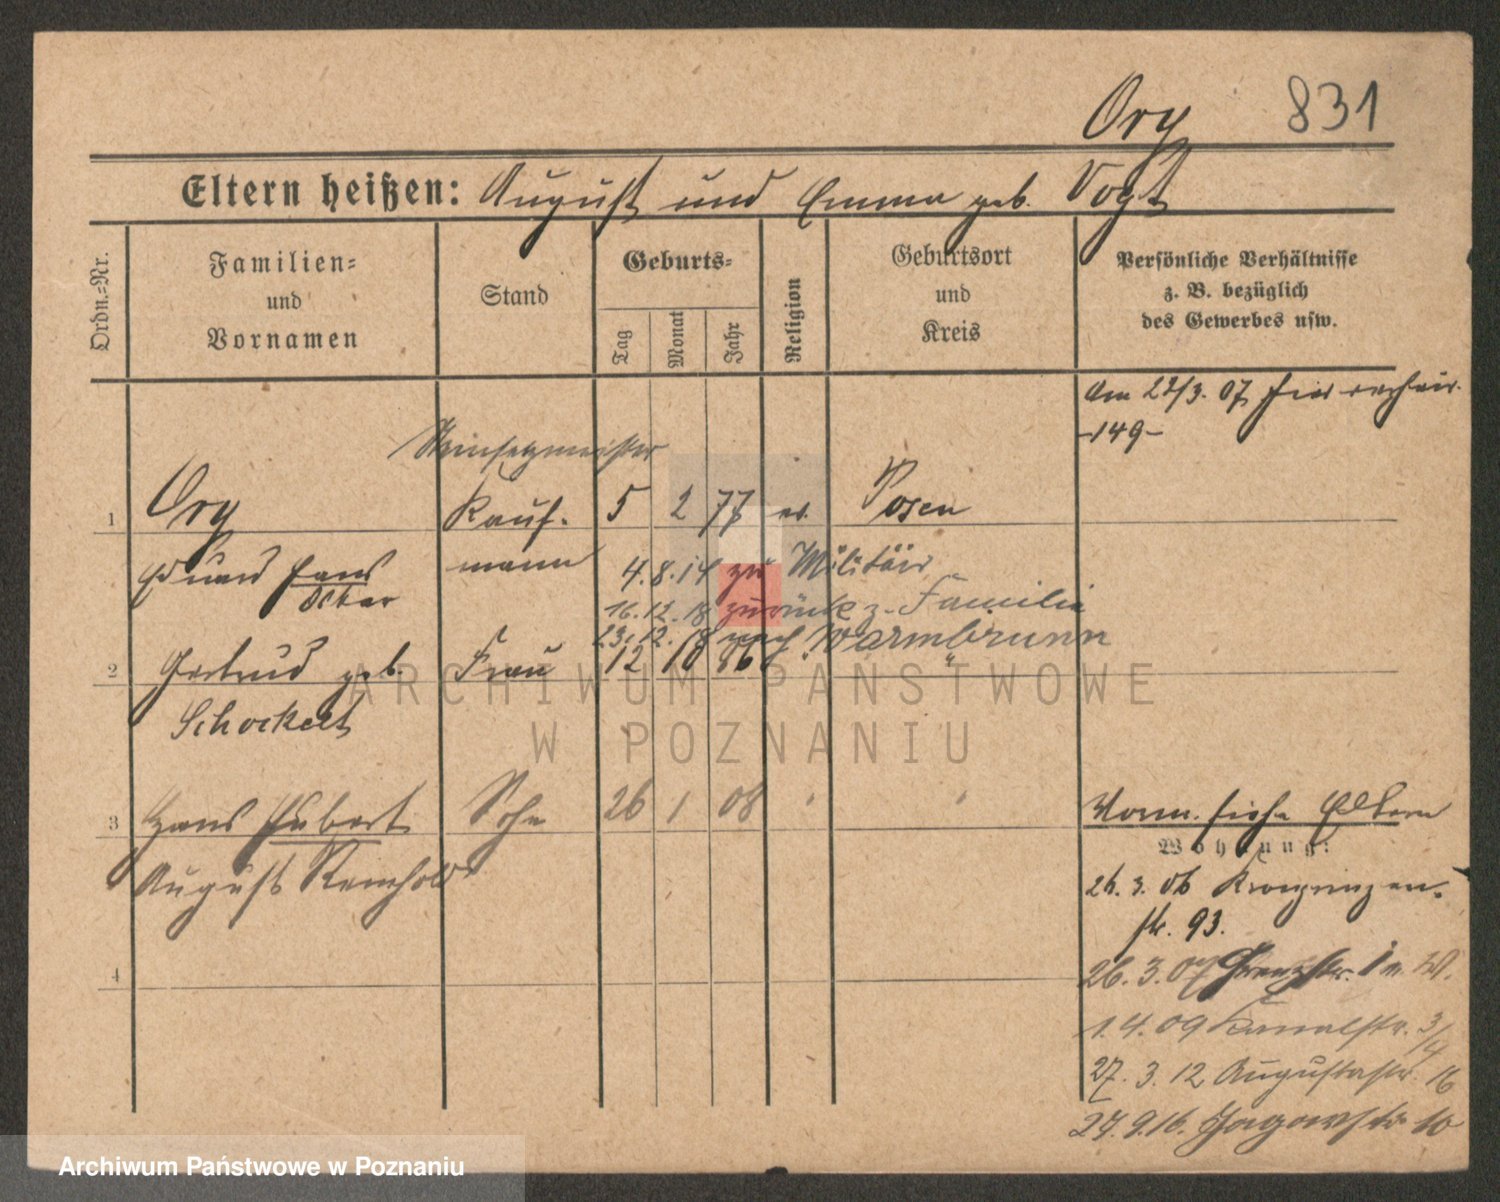 Org 831
Eltern heißen: August und Emma geb. Vogt
Ordn.=Nr.
Familien=
und
Vornamen
Stand
Geburts=
Tag
Monat
Jahr
Religion
Geburtsort
und
Kreis
Persönliche Verhältnisse
z. B. bezüglich
des Gewerbes usw.
Am 22/3. 07 hier
-149-
Steinsetzmeister
1 Org Kauf- 5 2 77 ev. Posen
Eduard Hans mann 4.8.14 zu Militär
Oskar
16.12.18 zurück z. Familie
23.12.18 nach Warmbrunn
2 Gertrud geb. Frau 12 10 86 "
Schockert
3 Hans Hubert Sohn 26 1 08 " "
August Reinhold
4
Vorm. siehe Eltern
Wohnung:
26. 3. 06 Kronprinzen-
str. 93.
26. 3. 07 Grenzstr. 1 W.
1. 4. 09 Kanalstr. 3/4
27. 3. 12 Augustastr. 16
27. 9. 16. Jagowstr. 10
ARCHIWUM PAŃSTWOWE
W POZNANIU
Archiwum Państwowe w Poznaniu